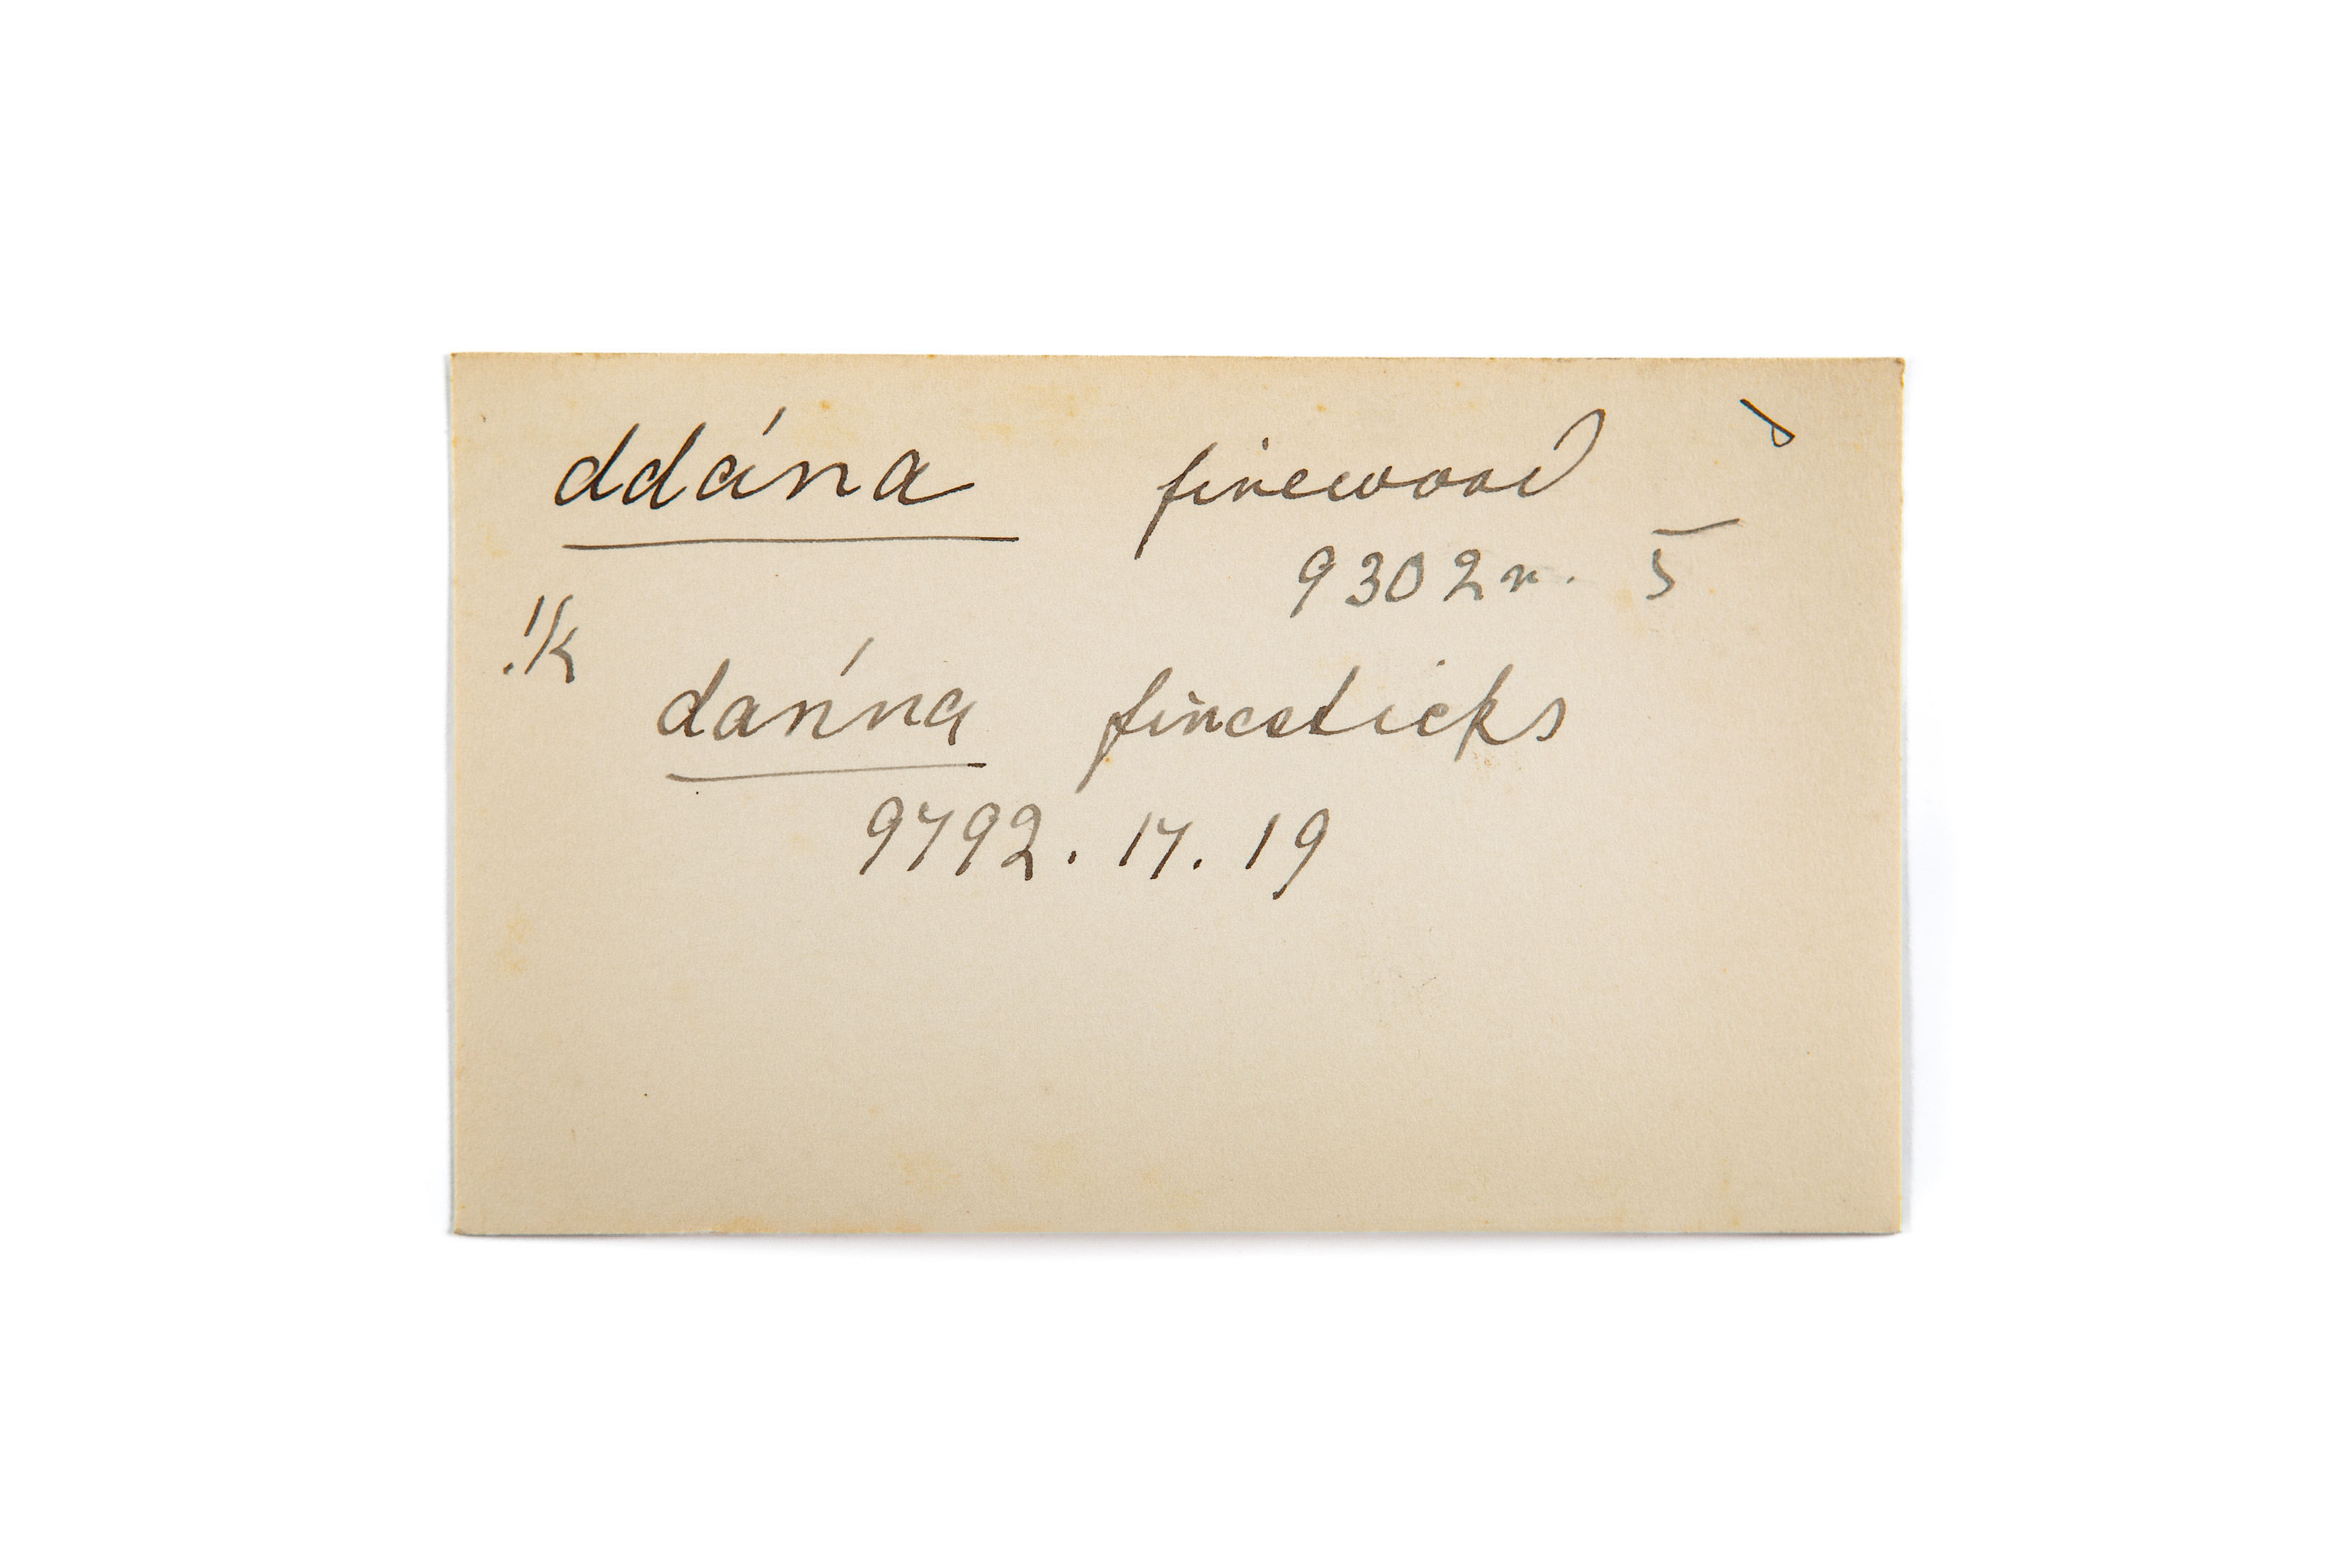 ddána firewood
9302n. 5
!k
dańna firesticks
9792. 17. 19